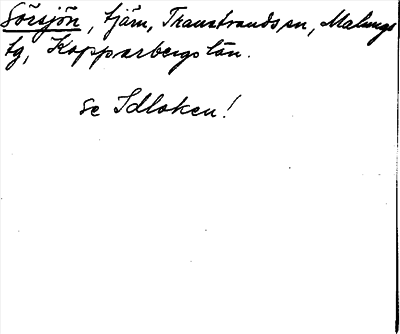 Sörsjön, tjärn, Transtrands sn, Malungs
tg, Kopparbergs län.
se Idloken!